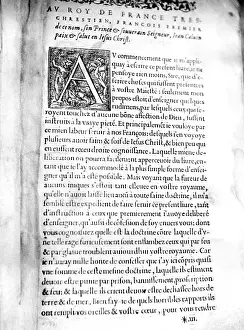 AV ROY DE FRANCE TRES-
CHRESTIEN, FRANCOIS PREMIER
de ce nom, son Prince & souuerain Seigneur, Iean Caluin
paix & salut en Iesus Christ.
AV commencement que ie m'ap-
pliquay à escrire ce present liure, ie ne
pensoye rien moins, Sire, que d'e-
scrire choses qui fussent presentées
à vostre Maiesté: seulement mon
propos estoit d'enseigner quelques
rudimens, par lesquels ceux qui se-
royent touchez d'aucune bonne affection de Dieu, fussent
instruits à la vraye pieté. Et principalement ie vouloye par
ce mien labeur seruir à nos François: desquels i'en voyoye
plusieurs auoir faim & soif de Iesus Christ, & bien peu qui
en eussent receu droite cognoissance. Laquelle mienne de-
liberation on pourra facilement apperceuoir du liure, en-
tant que ie l'ay accommodé à la plus simple forme d'ensei-
gner qu'il m'a esté possible. Mais voyant que la fureur de
aucuns iniques s'estoit tant eleuée en vostre royaume,
qu'elle n'auoit laissé lieu aucun à toute saine doctrine, il m'a
semblé estre expedient de faire seruir ce present liure, tant
d'instruction à ceux que premierement i'auoye deliberé
d'enseigner, qu'aussi de confession de foy enuers vous: dont
vous cognoissiez quelle est la doctrine contre laquelle d'vne
telle rage furieusement sont enflambez ceux qui par feu
& par glaiue troublent auiourd'huy vostre royaume. Car
ie n'auray nulle honte de confesser que i'ay icy comprins quasi
vne somme de ceste mesme doctrine, laquelle ils estiment
deuoir estre punie par prison, bannissement, proscription
& feu: & laquelle ils crient deuoir estre deschassée hors
de terre & de mer. Bien say-ie de quels horribles rapports ils
ont remply vos oreilles & vostre cœur, pour vous rendre
*.iii.